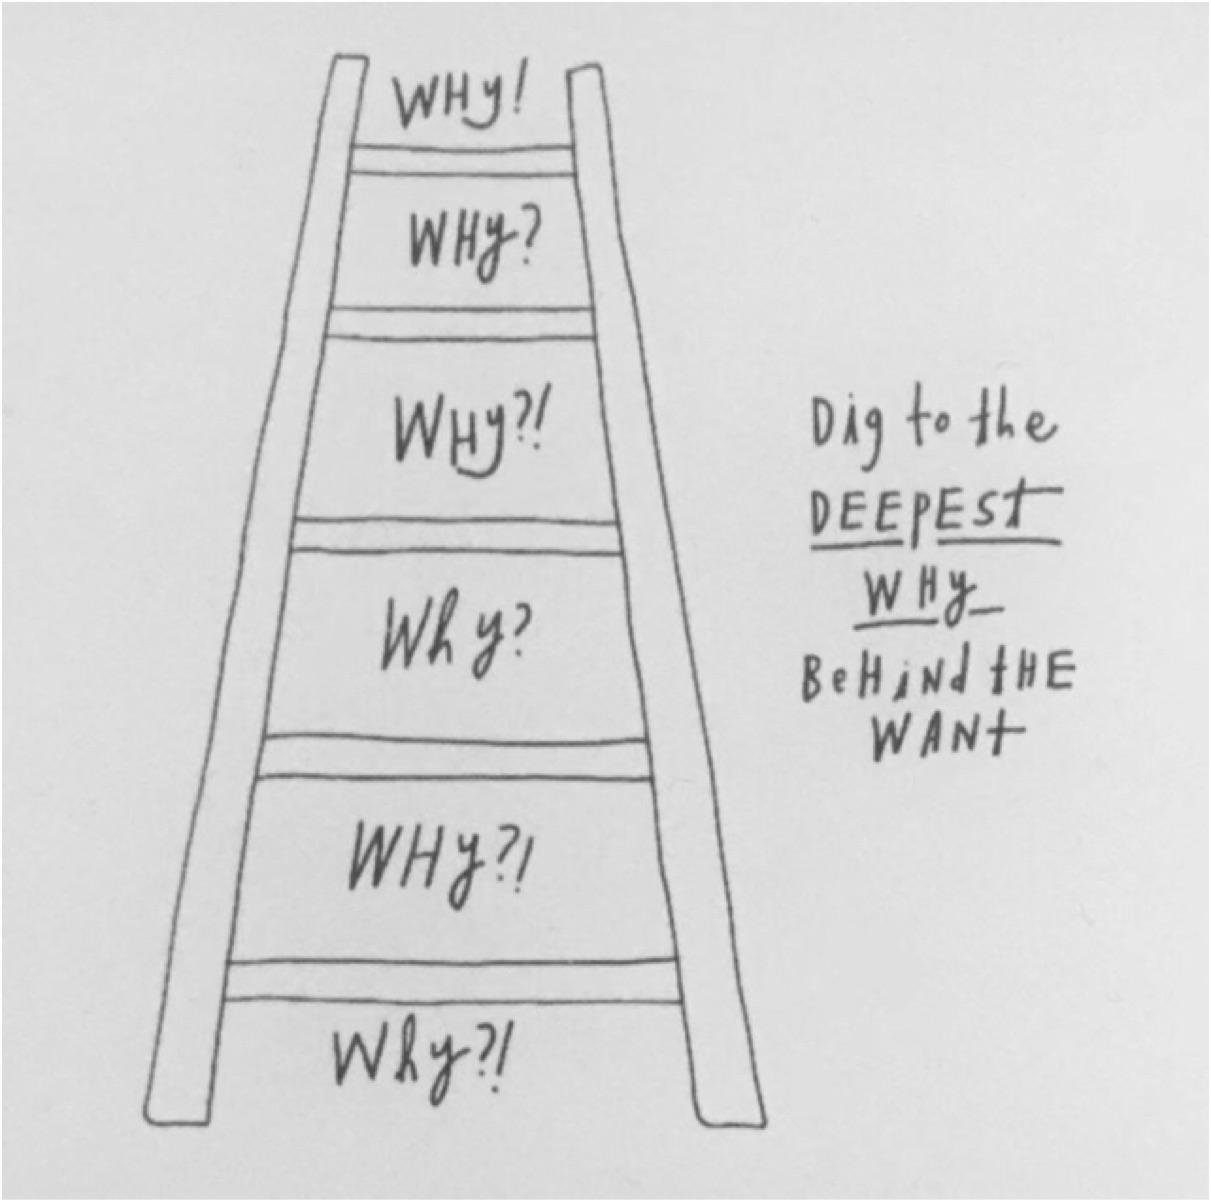 WHy!
WHy?
WHy?!
Why?
WHy?!
Why?!
Dig to the
DEEpESt
WHy
BeHiNd tHE
WANt